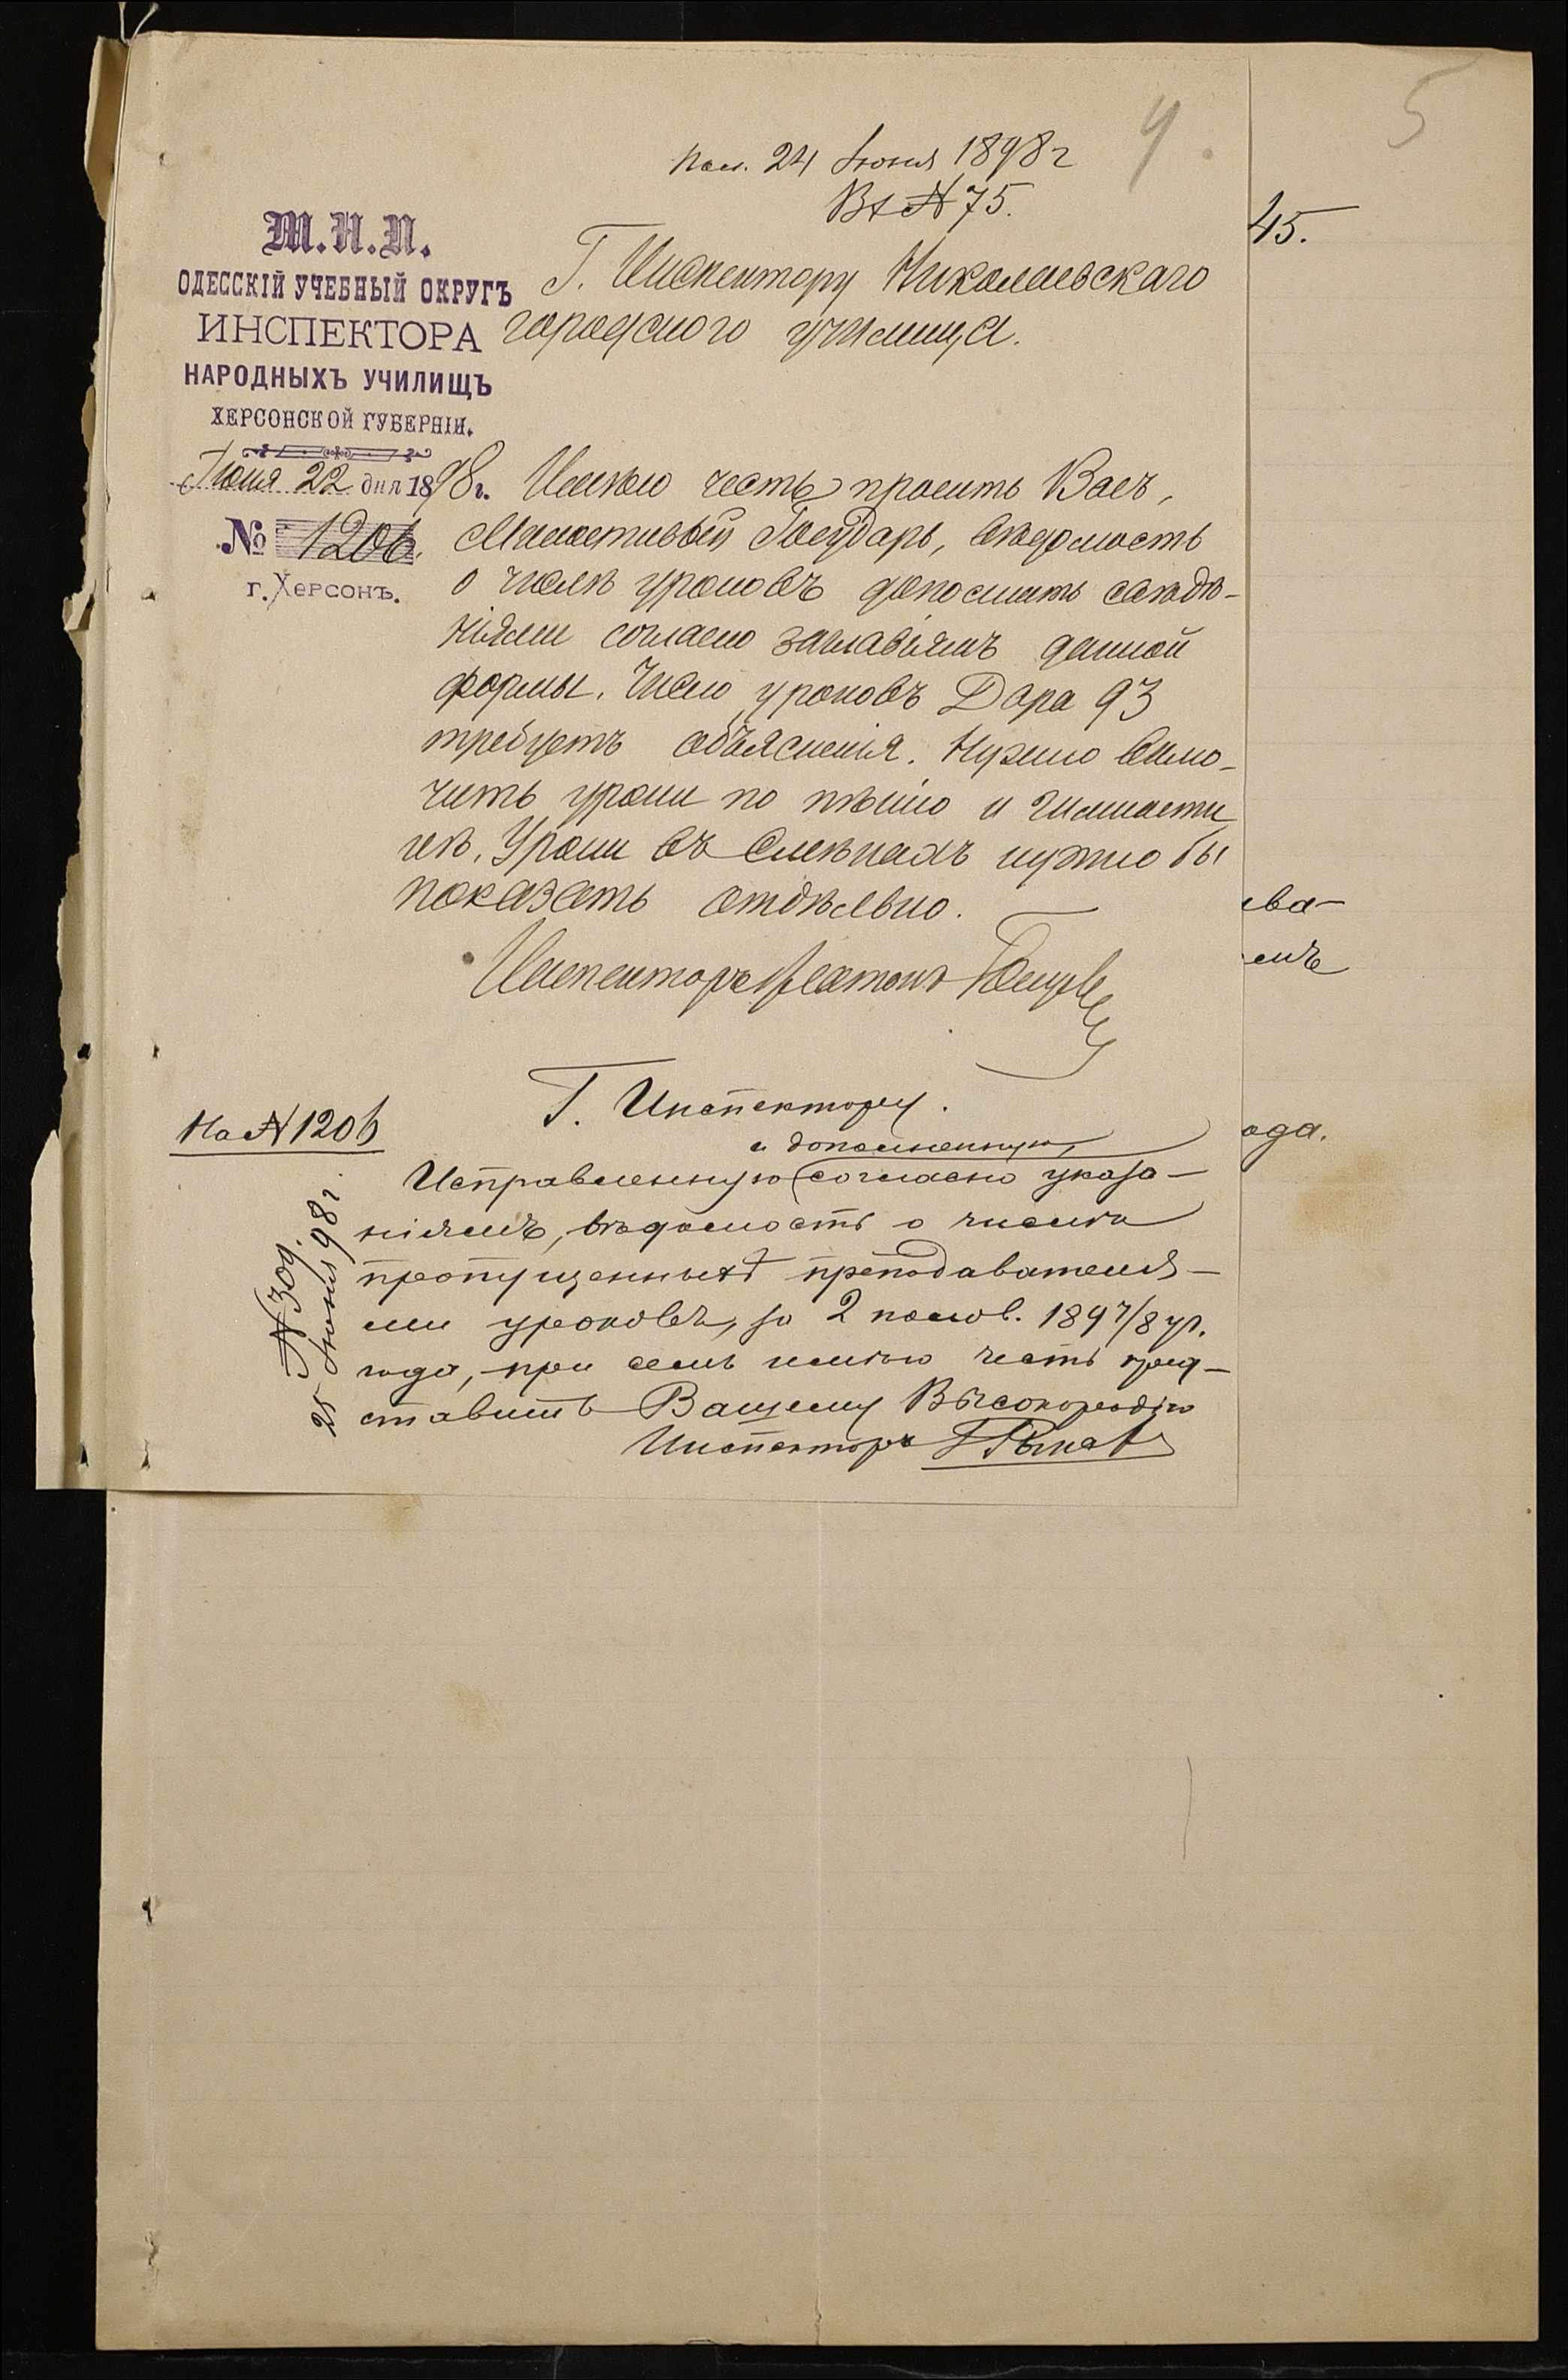 4.
5
Пол. 24 Июня 1898 г
Вх № 75.
45.
М.Н.П.
ОДЕССКІЙ УЧЕБНЫЙ ОКРУГЪ
ИНСПЕКТОРА
НАРОДНЫХЪ УЧИЛИЩЪ
ХЕРСОНСКОЙ ГУБЕРНІИ.
Іюня 22 дня 1898 г.
№ 1206.
г. Херсонъ.
Г. Инспектору Николаевскаго
городского училища.
Имѣю честь просить Васъ,
Милостивый Государь, вѣдомость
о числѣ уроковъ дополнить свѣдѣ-
ніями согласно заглавіямъ данной
формы. Число уроковъ Дара 93
требуетъ объясненія. Нужно вклю-
чить уроки по пѣнію и гимнасти
кѣ. Уроки въ смѣнахъ нужно бы
показать отдѣльно.
Инспекторъ
ева-
емъ
ода.
На № 1206
Г. Инспектору.
и дополненную,
Исправленную согласно указа-
ніямъ, вѣдомость о числѣ
пропущенныхъ преподавателя-
ми уроковъ, за 2 полов. 1897/8 уч.
года, при семъ имѣю честь пред-
ставить Вашему Высокородію
Инспекторъ
№ 309.
25 Июня 98 г.